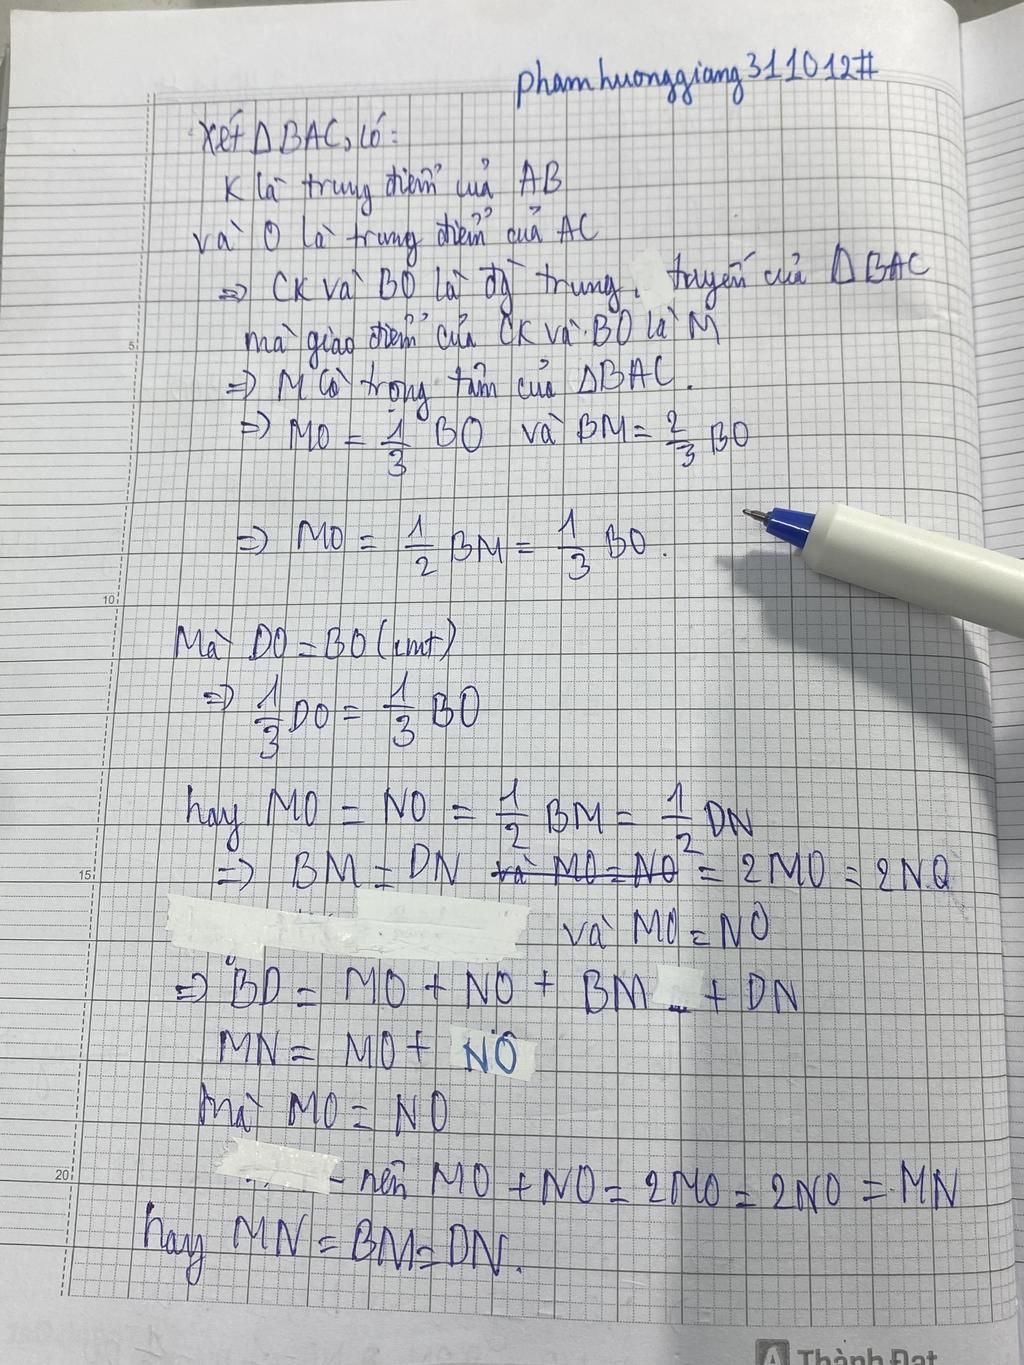 phamhuonggiang311012#
Xét ΔBAC, có:
K là trung điểm của AB
và O là trung điểm của AC
=> CK và BO là đg trung truyến của ΔBAC
mà giao điểm của CK và BO là M
=> M là trọng tâm của ΔBAC.
=> MO = 1/3 BO và BM = 2/3 BO
=> MO = 1/2 BM = 1/3 BO.
10
Mà DO = BO (cmt)
=> 1/3 DO = 1/3 BO
hay MO = NO = 1/2 BM = 1/2 DN
15
=> BM = DN và MO = NO = 2MO = 2NO
và MO = NO
=> BD = MO + NO + BM + DN
MN = MO + NO
mà MO = NO
20
nên MO + NO = 2MO = 2NO = MN
hay MN = BM = DN.
A Thành Đạt